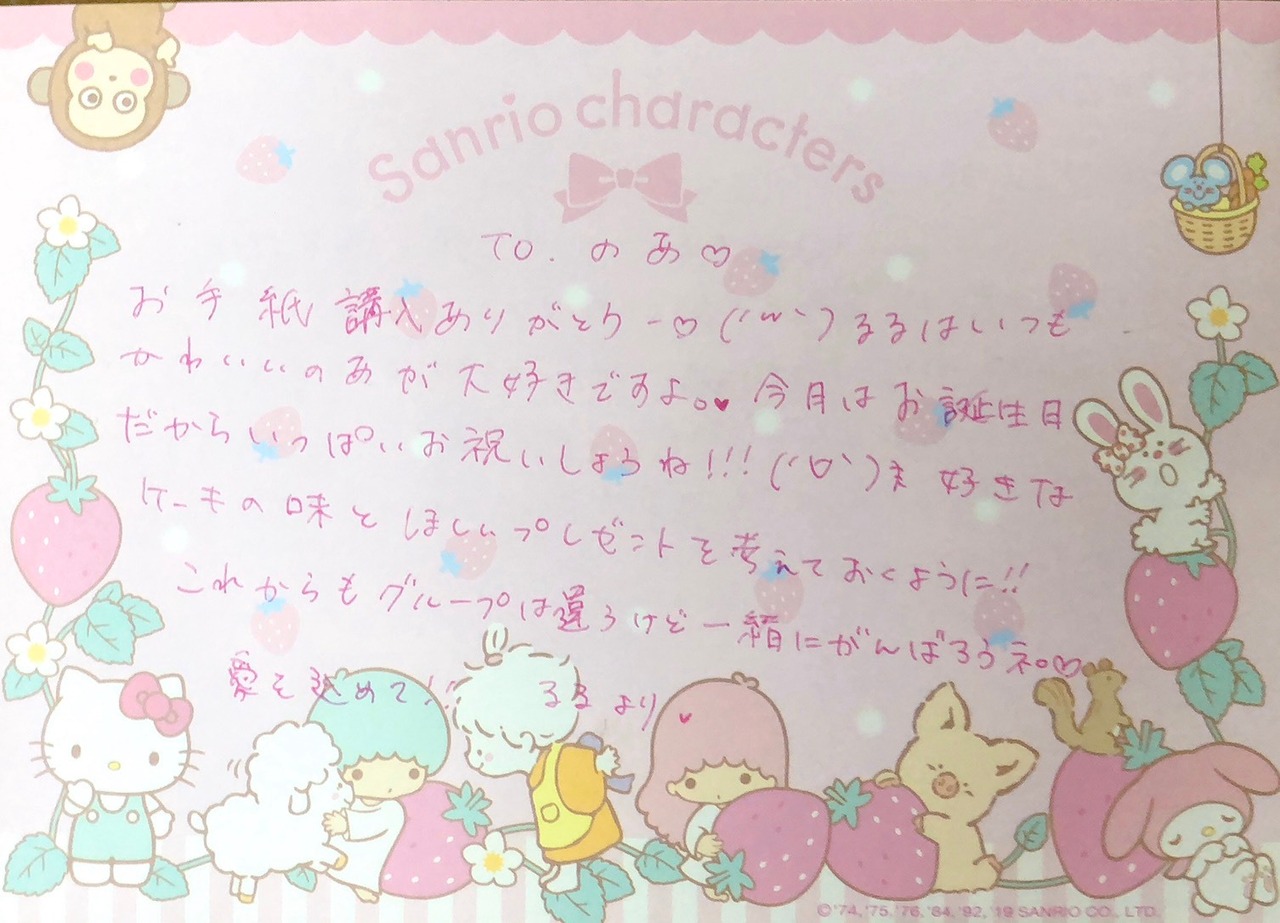 Sanrio characters
TO. のあ♡
お手紙講入ありがとうー♡(´'ω'`)るるはいつも
かわいいのあが大好きですよ。♥今月はお誕生日
だからいっぱいお祝いしようね!!!(´'▽'`)好きな
ケーキの味とほしいプレゼントを考えておくように!!
これからもグループは違うけど一緒にがんばろうネ。♡
愛を込めて!! るるより♥
©'74,'75,'76,'84,'92,'19 SANRIO CO., LTD.